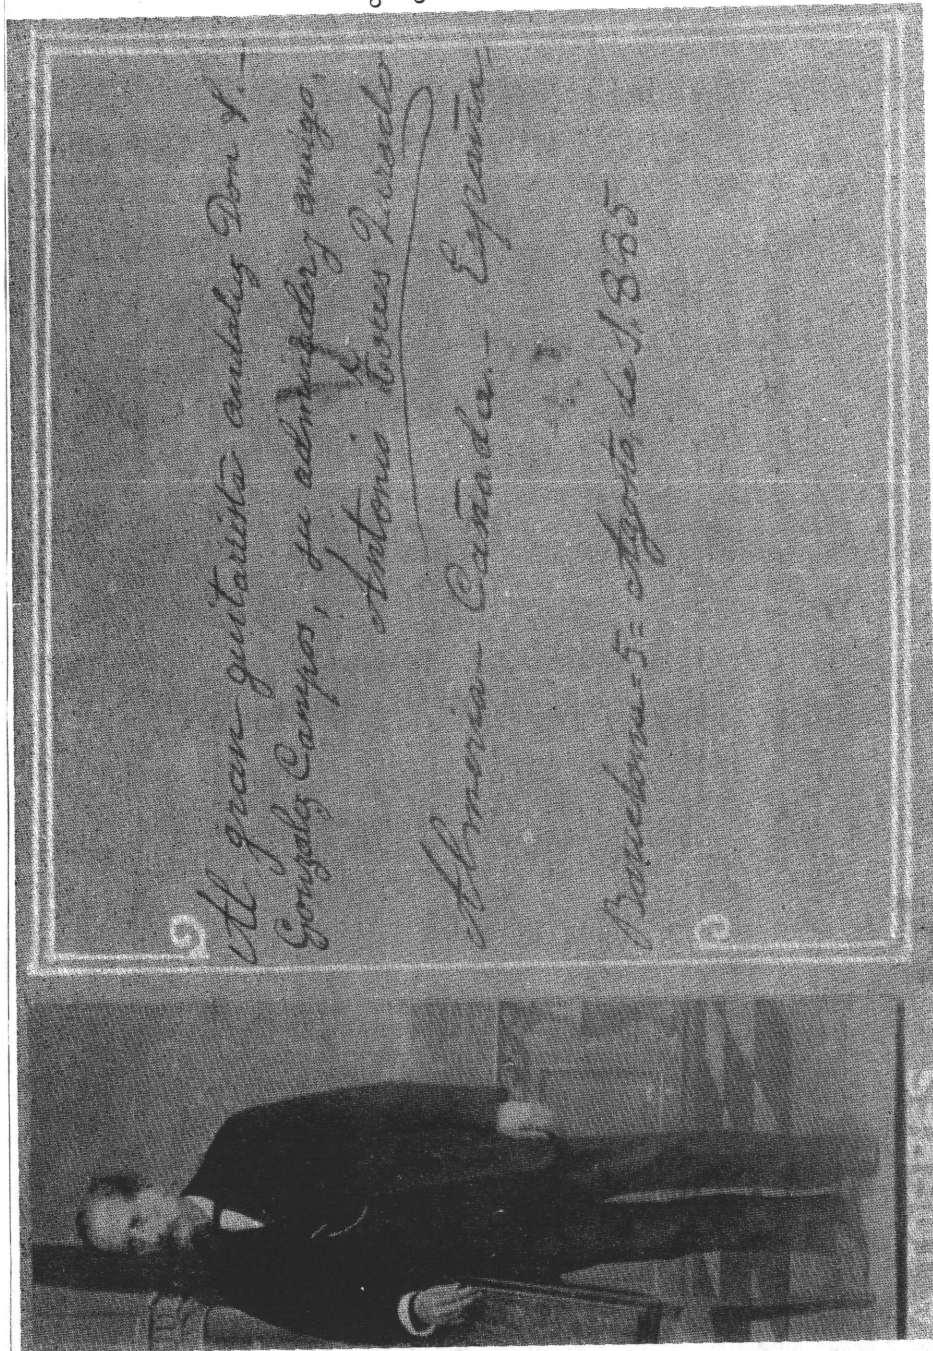 Al gran guitarrista andaluz Don F.-
Gonzalez Campos, su admirador y amigo,
Antonio Torres Jurado
Almeria - Cañada.- España
Barcelona = 5 = Agosto, de 1.885
TORRES